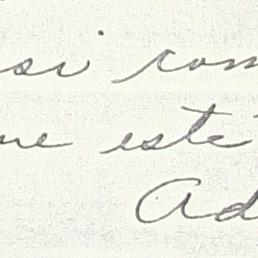 si com
me este
Ad